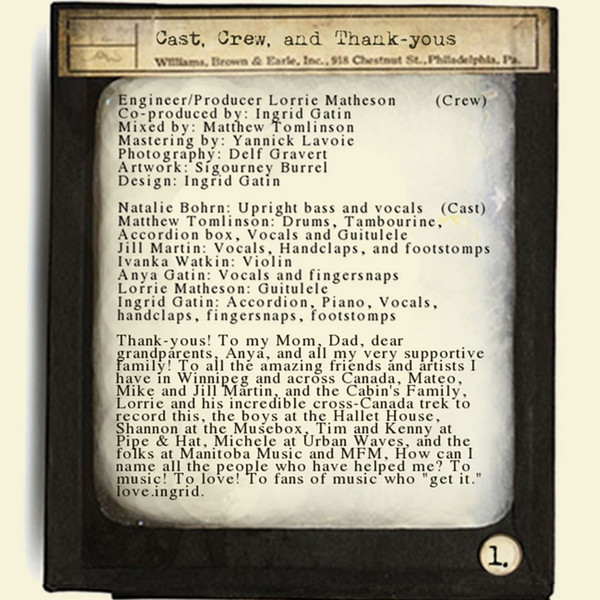 Cast, Crew, and Thank-yous
Williams, Brown & Earle, Inc., 918 Chestnut St., Philadelphia, Pa.
Engineer/Producer Lorrie Matheson (Crew)
Co-produced by: Ingrid Gatin
Mixed by: Matthew Tomlinson
Mastering by: Yannick Lavoie
Photography: Delf Gravert
Artwork: Sigourney Burrel
Design: Ingrid Gatin
Natalie Bohrn: Upright bass and vocals (Cast)
Matthew Tomlinson: Drums, Tambourine,
Accordion box, Vocals and Guitulele
Jill Martin: Vocals, Handclaps, and footstomps
Ivanka Watkin: Violin
Anya Gatin: Vocals and fingersnaps
Lorrie Matheson: Guitulele
Ingrid Gatin: Accordion, Piano, Vocals,
handclaps, fingersnaps, footstomps
Thank-yous! To my Mom, Dad, dear
grandparents, Anya, and all my very supportive
family! To all the amazing friends and artists I
have in Winnipeg and across Canada, Mateo,
Mike and Jill Martin, and the Cabin's Family,
Lorrie and his incredible cross-Canada trek to
record this, the boys at the Hallet House,
Shannon at the Musebox, Tim and Kenny at
Pipe & Hat, Michele at Urban Waves, and the
folks at Manitoba Music and MFM, How can I
name all the people who have helped me? To
music! To love! To fans of music who "get it."
love.ingrid.
1.